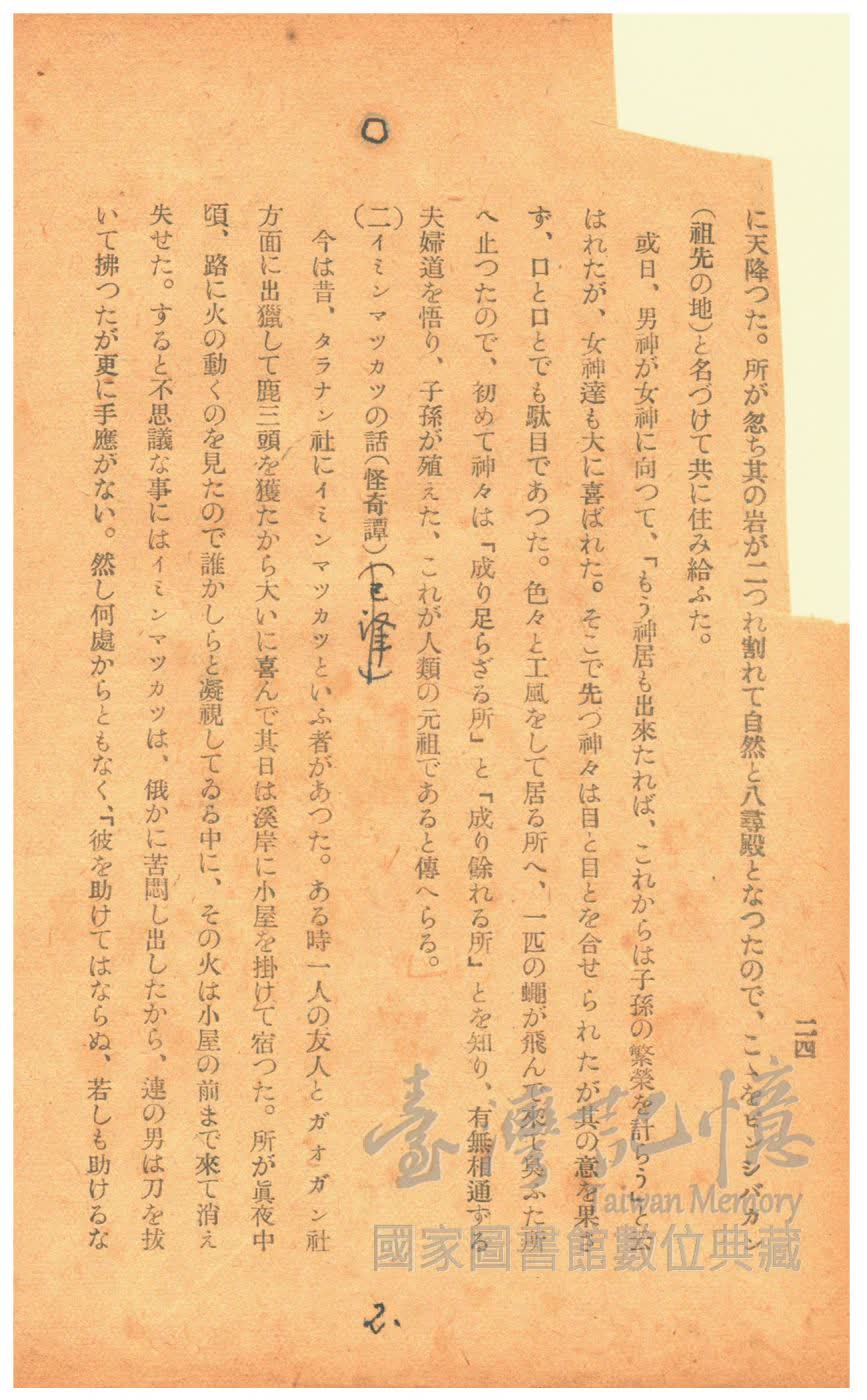 二四
に天降つた。所が忽ち其の岩が二つれ割れて自然と八尋殿となつたので、こゝをピンシバカン
(祖先の地)と名づけて共に住み給ふた。
或日、男神が女神に向つて、「もう神居も出來たれば、これからは子孫の繁榮を計らう」と云
はれたが、女神達も大に喜ばれた。そこで先づ神々は目と目とを合せられたが其の意を果さ
ず、口と口とでも駄目であつた。色々と工風をして居る所へ、一匹の蠅が飛んで來て奠ふた所
へ止つたので、初めて神々は「成り足らざる所」と「成り餘れる所」とを知り、有無相通ずる
夫婦道を悟り、子孫が殖えた、これが人類の元祖であると傳へらる。
○
(二)イミンマツカツの話(怪奇譚)
今は昔、タラナン社にイミンマツカツといふ者があつた。ある時一人の友人とガオガン社
方面に出獵して鹿三頭を獲たから大いに喜んで其日は溪岸に小屋を掛けて宿つた。所が眞夜中
頃、路に火の動くのを見たので誰かしらと凝視してゐる中に、その火は小屋の前まで來て消え
失せた。すると不思議な事にはイミンマツカツは、俄かに苦悶し出したから、連の男は刀を拔
いて拂つたが更に手應がない。然し何處からともなく、「彼を助けてはならぬ、若しも助けるな
2.
臺灣記憶
Taiwan Memory
國家圖書館數位典藏